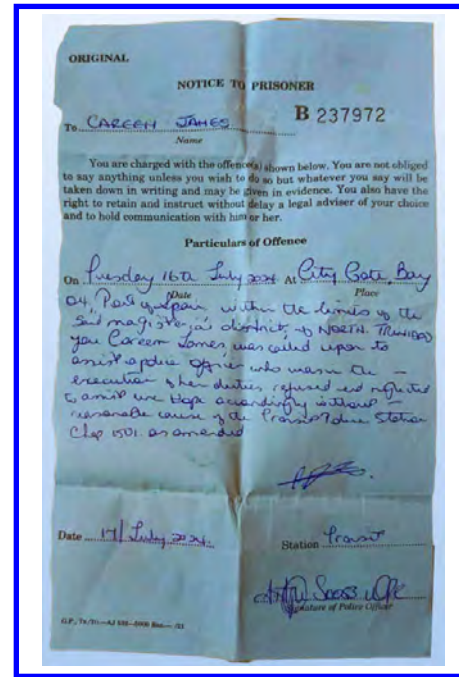 ORIGINAL
NOTICE TO PRISONER
B 237972
To CAREEN JAMES
Name
You are charged with the offence(s) shown below. You are not obliged
to say anything unless you wish to do so but whatever you say will be
taken down in writing and may be given in evidence. You also have the
right to retain and instruct without delay a legal adviser of your choice
and to hold communication with him or her.
Particulars of Offence
On Tuesday 16th July 2024 At City Gate, Bay
Date Place
04, Port of Spain within the limits of the
said magisterial district, of NORTH. TRINIDAD
you Careen James, was called upon to
assist a police officer who was in the –
execution of her duties refused and neglected
to assist accordingly without –
reasonable cause of the Transit Police Station
Chap 1501. as amended
Date 17/July 2024. Station Transit
Signature of Police Officer